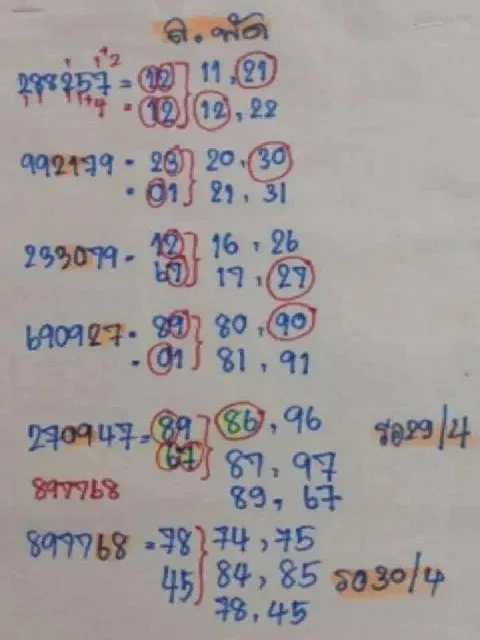 อ. พัด
288257 = 12 } 11, 21
= 12 } 12, 22
992179 - 23 } 20, 30
- 01 } 21, 31
233099 - 12 } 16, 26
67 } 17, 27
690927 - 89 } 80, 90
- 01 } 81, 91
270947 = 89 } 86, 96
67 } 87, 97
รอ29/4
897768
89, 67
897768 = 78 } 74, 75
45 } 84, 85
รอ30/4
78, 45